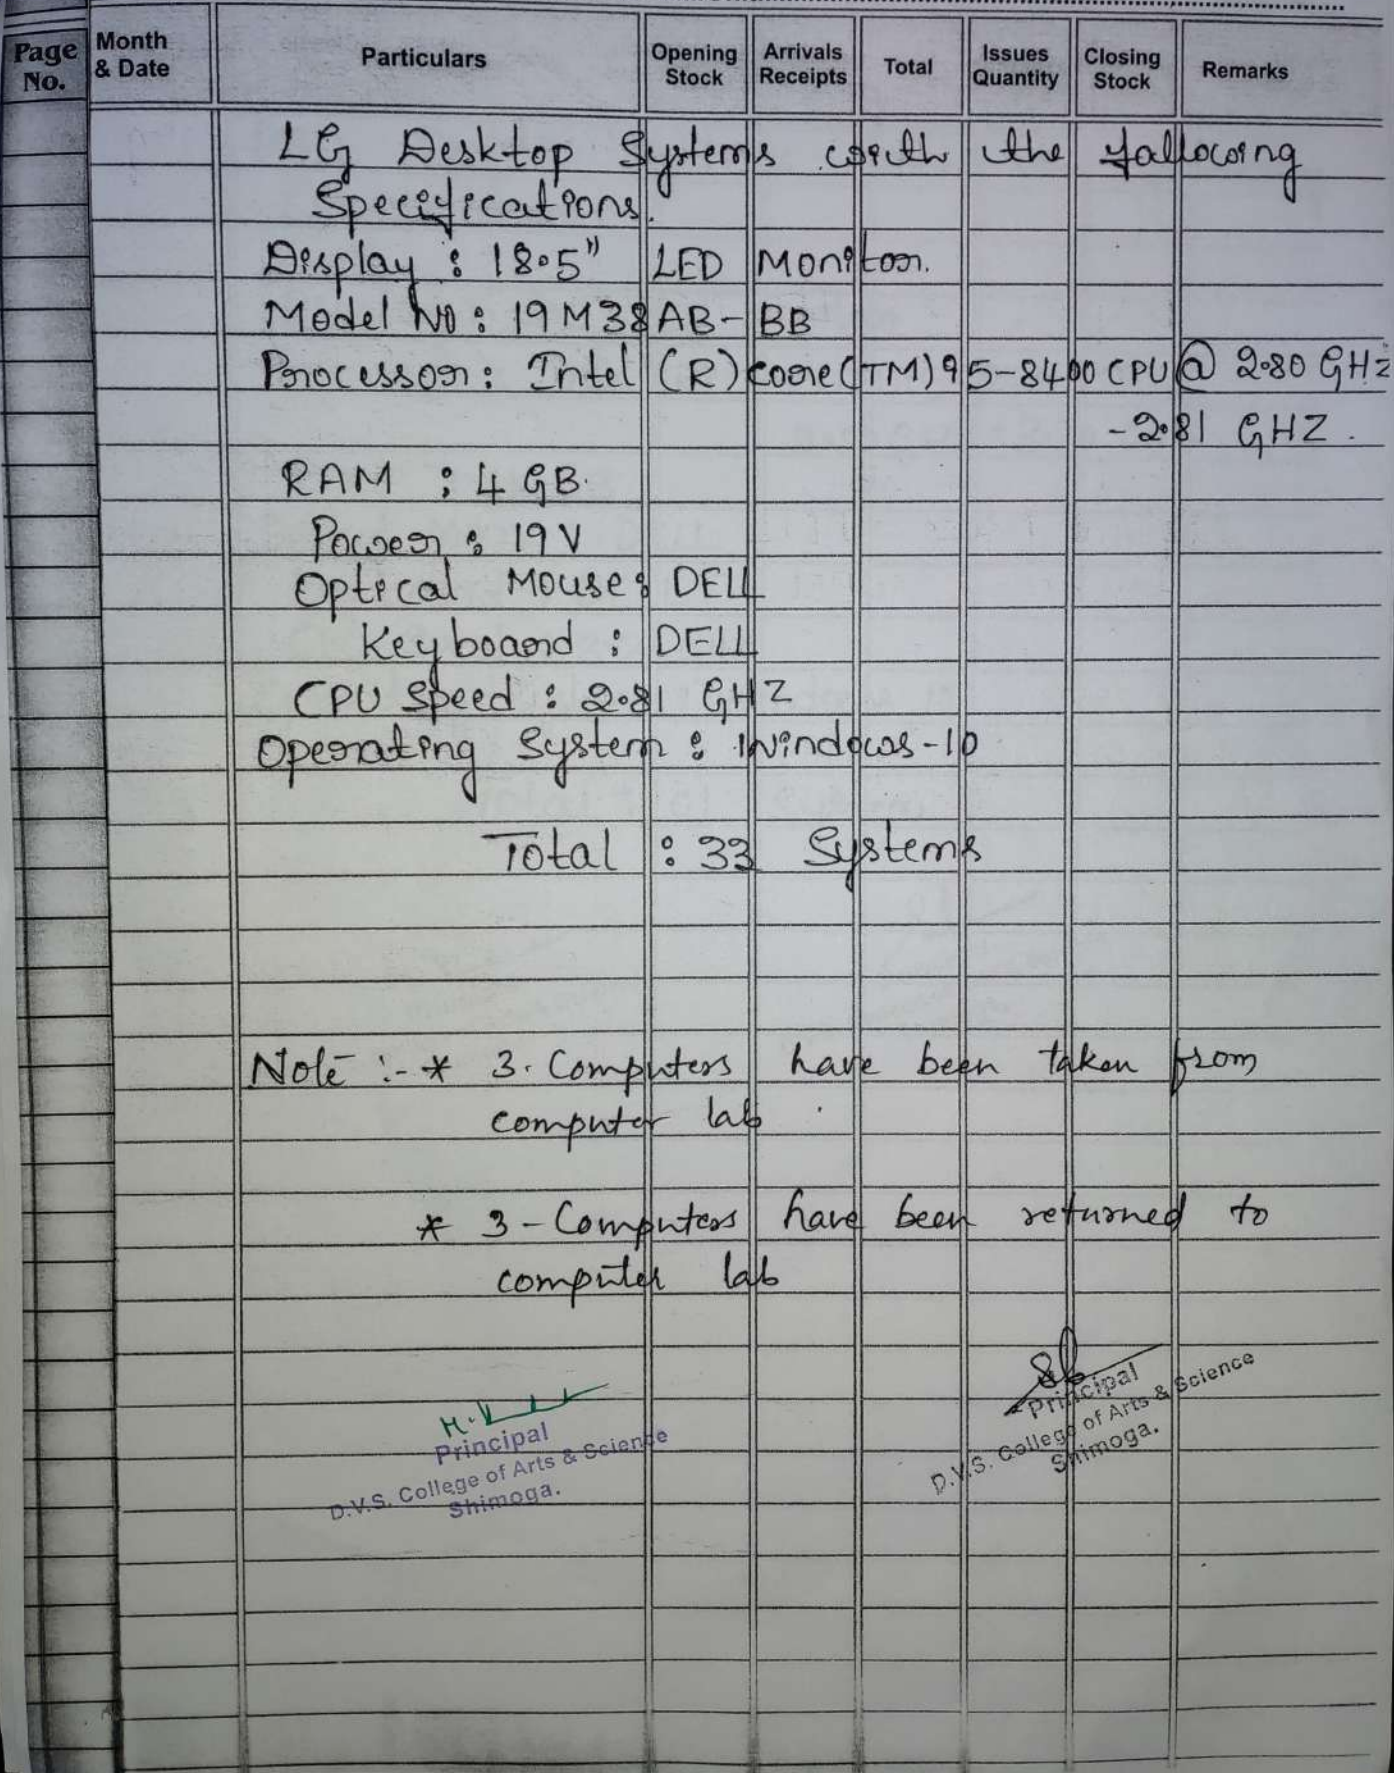 Page No.
Month & Date
Particulars
Opening Stock
Arrivals Receipts
Total
Issues Quantity
Closing Stock
Remarks
LG Desktop Systems with the following
Specifications.
Display : 18.5" LED Monitor.
Model No : 19M38AB-BB
Processor : Intel (R) core (TM) i5-8400 CPU @ 2.80 GHz
-2.81 GHZ.
RAM : 4 GB.
Power : 19V
Optical Mouse : DELL
Keyboard : DELL
CPU Speed : 2.81 GHZ
Operating System : Windows-10
Total : 33 Systems
Note :- * 3. Computers have been taken from
computer lab.
* 3 - Computers have been returned to
computer lab
Principal
D.V.S. College of Arts & Science
Shimoga.
Principal
D.V.S. College of Arts & Science
Shimoga.